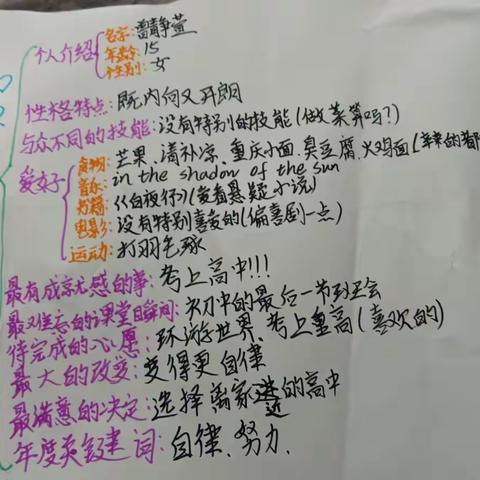 个人介绍
名字: 雷静萱
年龄: 15
性别: 女
性格特点: 既内向又开朗
与众不同的技能: 没有特别的技能(做菜算吗?)
爱好
食物: 芒果、清补凉、重庆小面、臭豆腐、火鸡面(辣的都
音乐: in the shadow of the sun
书籍: 《白夜行》(爱看悬疑小说)
电影: 没有特别喜爱的(偏喜剧一点)
运动: 打羽毛球
最有成就感的事: 考上高中!!!
最难忘的课堂瞬间: 初中的最后一节班会
待完成的心愿: 环游世界、考上重高(喜欢的)
最大的改变: 变得更自律
最满意的决定: 选择离家近的高中
年度关键词: 自律、努力.